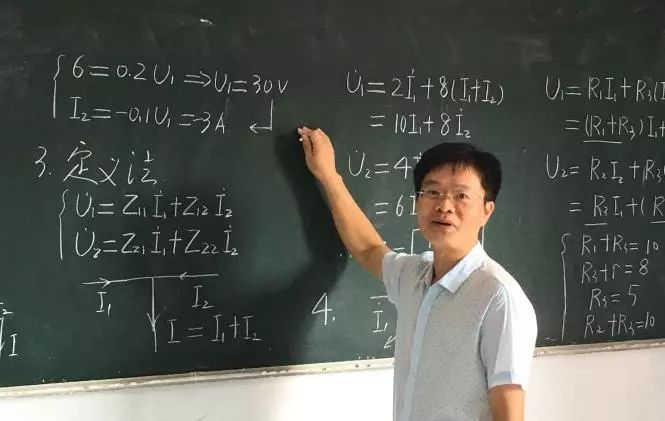 6=0.2U₁⇒U₁=30V
I₂=-0.1U₁=-3A
3. 定义法
U̇₁=Z₁₁İ₁+Z₁₂İ₂
U̇₂=Z₂₁İ₁+Z₂₂İ₂
I₁ I₂
I=I₁+I₂
I
U̇₁=2İ₁+8(İ₁+İ₂)
=10İ₁+8İ₂
U̇₂=4
=6
=
4.
I₁
U₁=R₁I₁+R₃(I
=(R₁+R₃)I₁+
U₂=R₂I₂+R₃(
=R₃I₁+(R
R₁+R₃=10
R₃+r=8
R₃=5
R₂+R₃=10